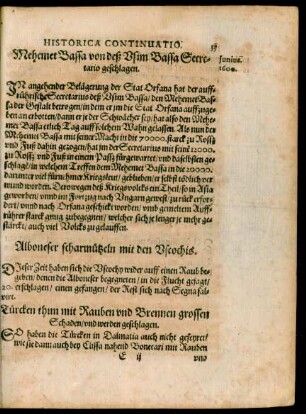 HISTORICA CONTINUATIO.
37
Mehemet Bassa von deß Vsim Bassa Secre-
tario geschlagen.
Junius
1600.
IN angehender Belägerung der Stat Orfana hat der auff-
rührische Secretarius deß Vsim Bassa / den Mehemet Bas-
sa der Gestalt betrogen / in dem er jm die Stat Orfana auffzuge-
ben anerbotten / dann er je der Schwächer sey / hat also den Mehe-
met Bassa etlich Tag auff solchem Wahn gelassen. Als nun der
Mehemet Bassa mit seiner Macht in die 70000. starck zu Roß
vnd Fuß dahin gezogen / hat jm der Secretarius mit seinē 12000.
zu Roß vnd Fuß in einem Paß fürgewartet / vnd daselbsten ge-
schlagē / in welchem Treffen dem Mehemet Bassa in die 20000.
darunter viel fürnehmer Kriegsleut / geblieben / er selbst tödlich ver-
wund worden. Derowegen deß Kriegsvolcks ein Theil / so in Asia
geworben / vnd im Fortzug nach Vngarn gewest / zu rück erfor-
dert / vnd nach Orfana geschickt worden / vmb gemeltem Auff-
rührer starck gnug zubegegnen / welcher sich je lenger je mehr ge-
stärckt / auch viel Volcks zu gelauffen.
Alboneser scharmützeln mit den Vscochis.
DIeser Zeit haben sich die Vscochy wider auff einen Raub be-
geben / denen die Alboneser begegneten / in die Flucht gejagt /
20. erschlagen / einen gefangen / der Rest sich nach Segna sal-
virt.
Türcken thun mit Rauben vnd Brennen grossen
Schaden / vnd werden geschlagen.
SO haben die Türcken in Dalmatia auch nicht gefeyret /
wie sie dann auch bey Lissa nahend Bonetari mit Rauben
E ij
vnd